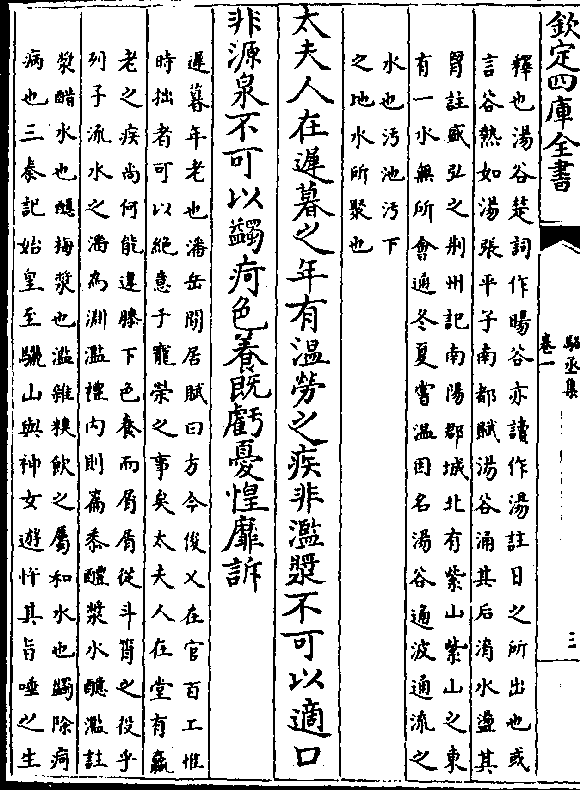 欽定四庫全書
駱丞集
卷一
三
釋也湯谷楚詞作暘谷亦讀作湯註日之所出也或
言谷熱如湯張平子南都賦湯谷涌其后淯水盪其
胷註盛弘之荆州記南陽郡城北有紫山紫山之東
有一水無所會通冬夏嘗温因名湯谷通波通流之
水也污池污下
之地水所聚也
太夫人在遲暮之年有温勞之疾非濫漿不可以適口
非源泉不可以蠲疴色養既虧憂惶靡訴
遲暮年老也潘岳閒居賦曰方今俊乂在官百工惟
時拙者可以絶意于寵榮之事矣太夫人在堂有羸
老之疾尚何能違膝下色養而屑屑從斗筲之役乎
列子流水之潘為淵濫禮内則黍醴漿水醷濫註
漿醋水也醷梅漿也濫雜糗飲之屬和水也蠲除疴
病也三秦記始皇至驪山與神女遊忤其旨唾之生